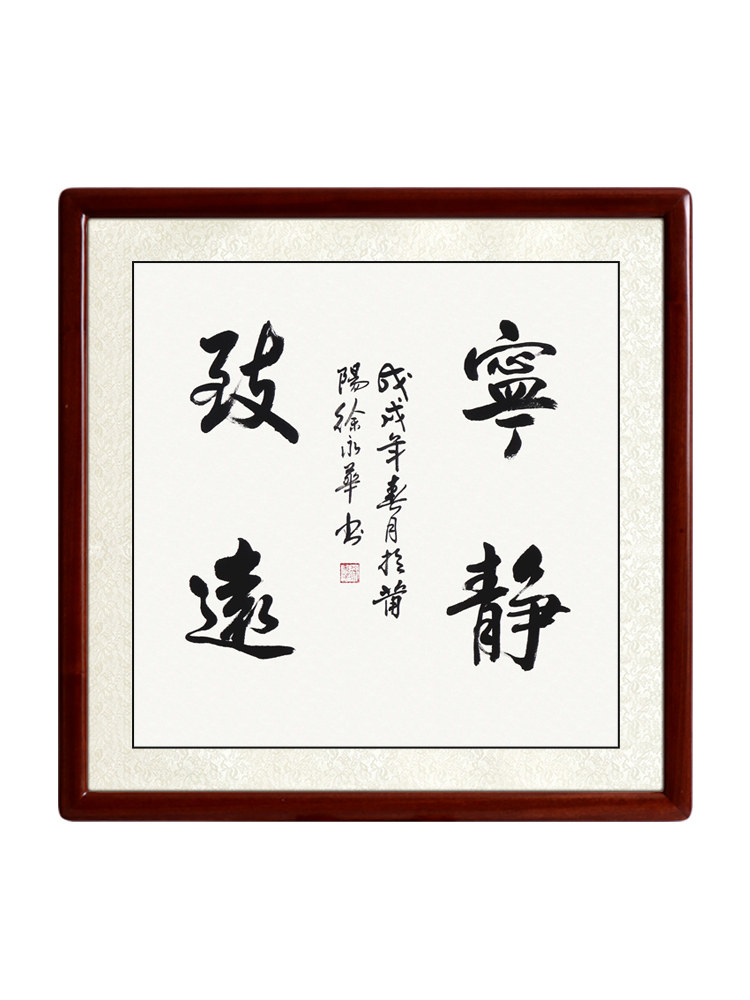 寧静
致遠
戊戌年春月於莆
陽徐永華书